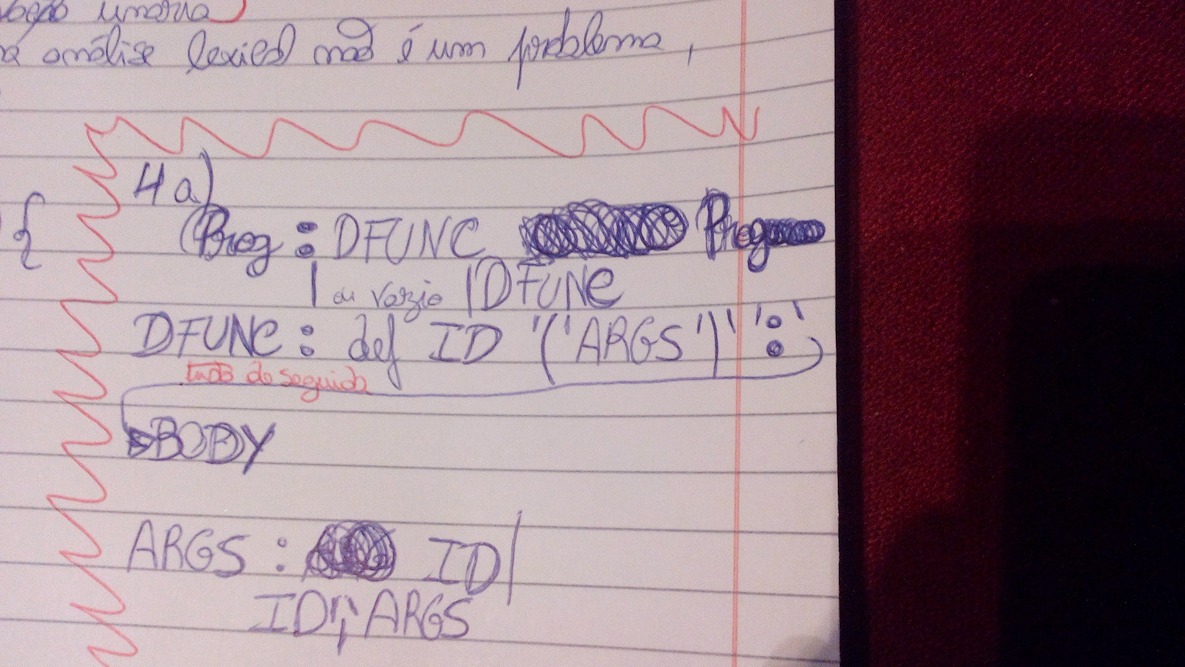 unária)
análise lexical não é um problema,
4a)
{
Prog : DFUNC Prog
| ou vazio | DFUNC
DFUNC : def ID '(' ARGS ')' ':'
tudo de seguida
BODY
ARGS : ID |
ID ',' ARGS